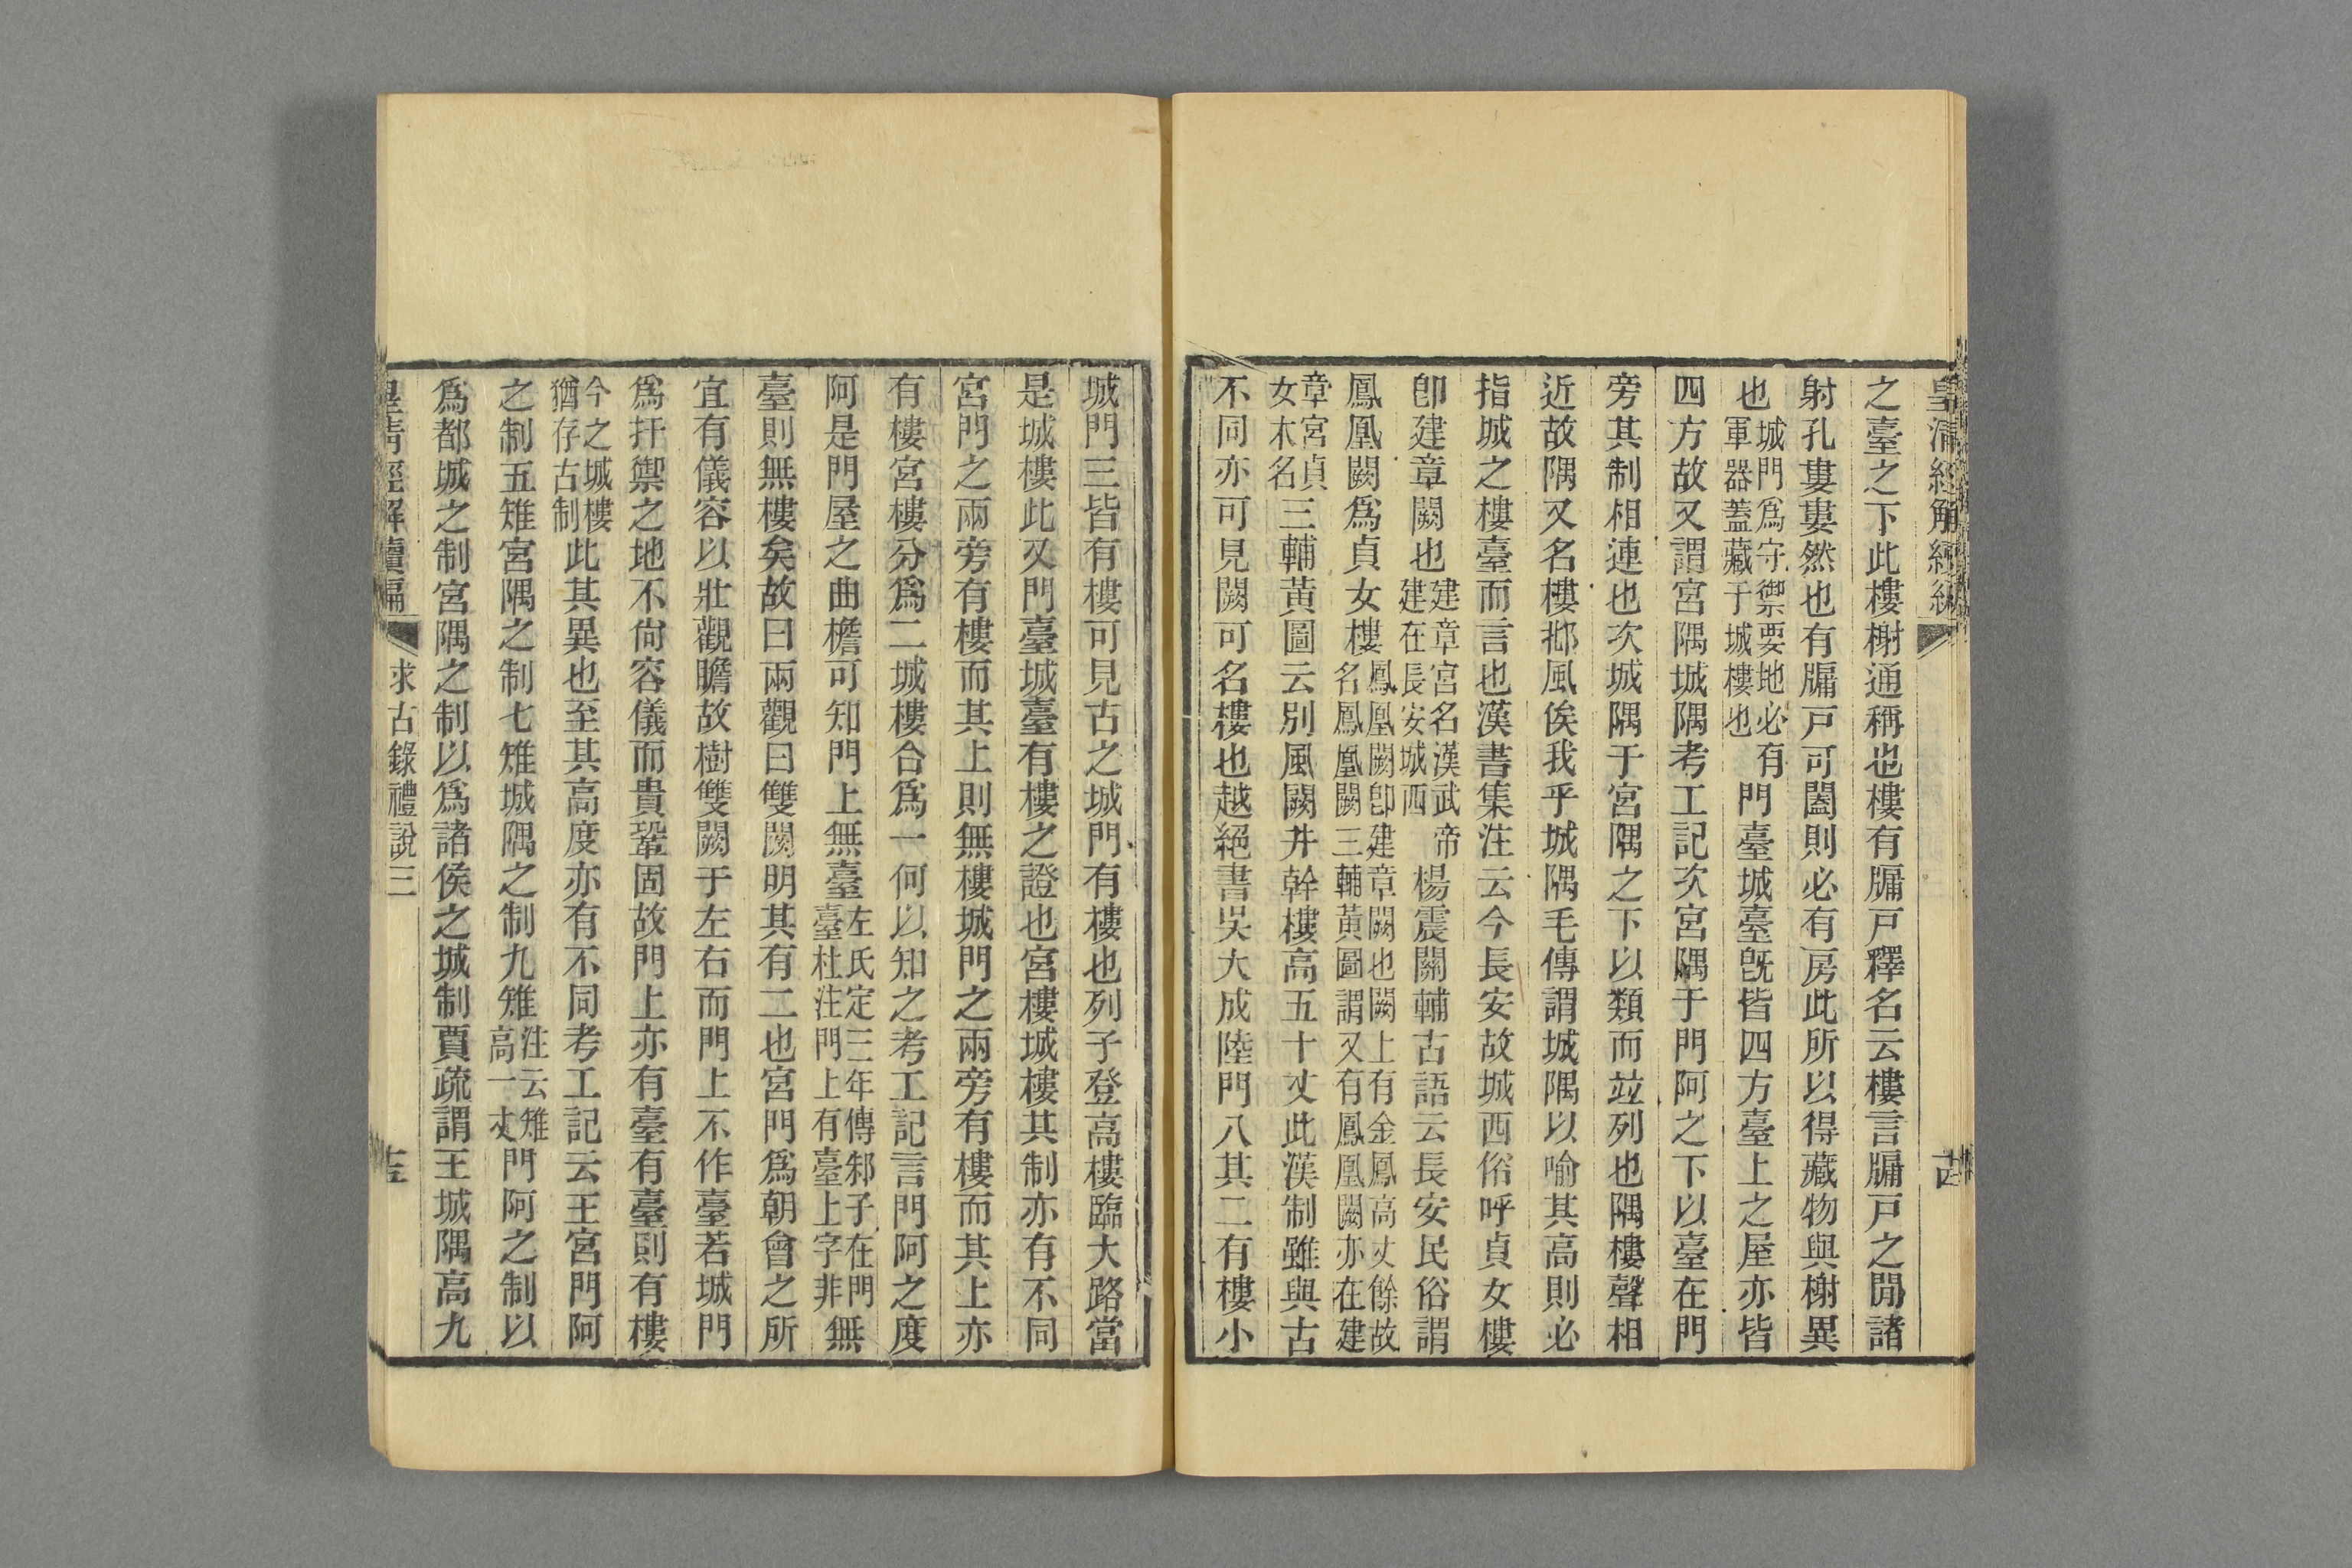 皇清經解續編
十四
之臺之下此樓榭通稱也樓有牖戸釋名云樓言牖戸之閒諸
射孔婁婁然也有牖戸可闔則必有房此所以得藏物與榭異
也城門爲守禦要地必有軍器蓋藏于城樓也門臺城臺旣皆四方臺上之屋亦皆
四方故又謂宮隅城隅考工記次宮隅于門阿之下以臺在門
旁其制相連也次城隅于宮隅之下以類而竝列也隅樓聲相
近故隅又名樓邶風俟我乎城隅毛傳謂城隅以喻其高則必
指城之樓臺而言也漢書集注云今長安故城西俗呼貞女樓
卽建章闕也建章宮名漢武帝建在長安城西楊震關輔古語云長安民俗謂
鳳凰闕爲貞女樓鳳凰闕卽建章闕也闕上有金鳳高丈餘故名鳳凰闕三輔黃圖謂又有鳳凰闕亦在建
章宮貞女木名三輔黃圖云別風闕井幹樓高五十丈此漢制雖與古
不同亦可見闕可名樓也越絕書吳大成陸門八其二有樓小
城門三皆有樓可見古之城門有樓也列子登高樓臨大路當
是城樓此又門臺城臺有樓之證也宮樓城樓其制亦有不同
宮門之兩旁有樓而其上則無樓城門之兩旁有樓而其上亦
有樓宮樓分爲二城樓合爲一何以知之考工記言門阿之度
阿是門屋之曲檐可知門上無臺左氏定三年傳邾子在門臺杜注門上有臺上字非無
臺則無樓矣故曰兩觀曰雙闕明其有二也宮門爲朝會之所
宜有儀容以壯觀瞻故樹雙闕于左右而門上不作臺若城門
爲扞禦之地不尙容儀而貴鞏固故門上亦有臺有臺則有樓
今之城樓猶存古制此其異也至其高度亦有不同考工記云王宮門阿
之制五雉宮隅之制七雉城隅之制九雉注云雉高一丈門阿之制以
爲都城之制宮隅之制以爲諸侯之城制賈疏謂王城隅高九
皇清經解續編
求古錄禮說三
十五